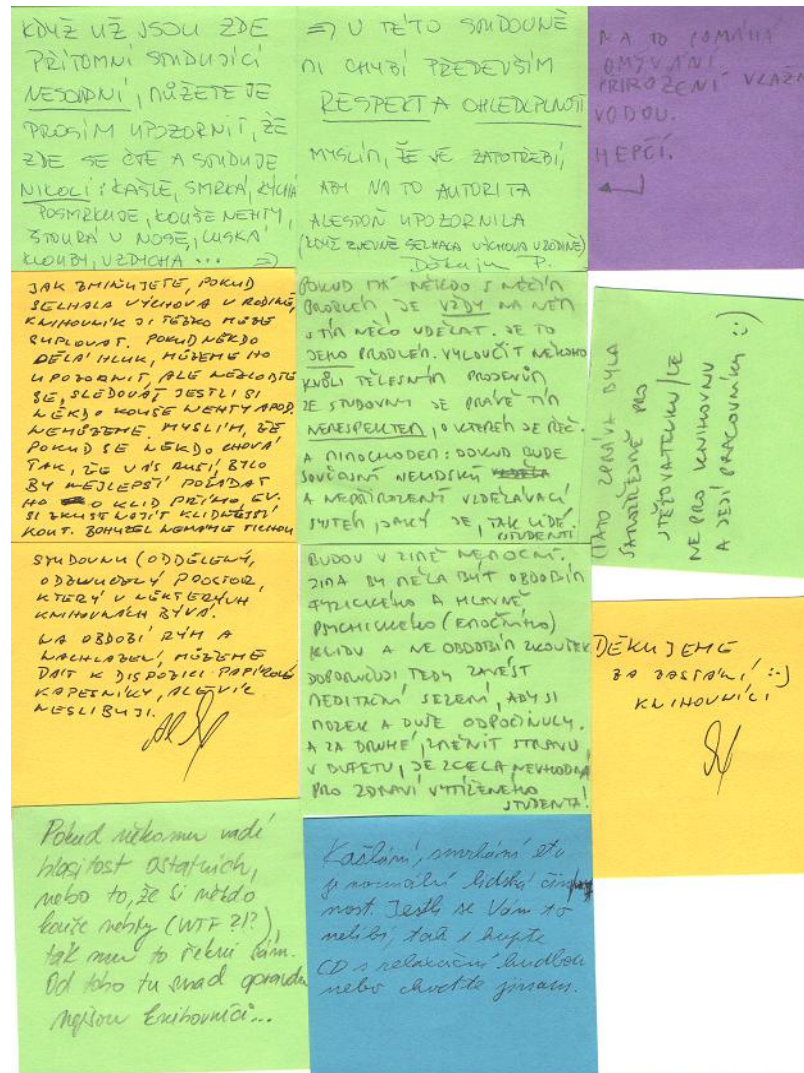 KDYŽ UŽ JSOU ZDE
PŘÍTOMNÍ STUDUJÍCÍ
NESCHOPNÍ, MŮŽETE JE
PROSÍM UPOZORNIT, ŽE
ZDE SE ČTE A STUDUJE
NIKOLI: KAŠLE, SMRKÁ, KÝCHÁ
POSMRKUJE, KOUŠE NEHTY,
ŠŤOURÁ V NOSE, LUSKÁ
KLOUBY, VZDYCHÁ ... =>
=> U TÉTO STUDOVNĚ
MI CHYBÍ PŘEDEVŠÍM
RESPEKT A OHLEDUPLNOST
MYSLÍM, ŽE JE ZAPOTŘEBÍ,
ABY NA TO AUTORITA
ALESPOŇ UPOZORNILA
(KDYŽ ZJEVNĚ SELHALA VÝCHOVA V RODINĚ)
Děkuju P.
NA TO POMÁHÁ
OMÝVÁNÍ
PŘIROZENÍ VLAŽN
VODOU.
HEPČÍ.
JAK ZMIŇUJETE, POKUD
SELHALA VÝCHOVA V RODINĚ,
KNIHOVNÍK JI TĚŽKO MŮŽE
SUPLOVAT. POKUD NĚKDO
DĚLÁ HLUK, MŮŽEME HO
UPOZORNIT, ALE NEZLOBTE
SE, SLEDOVAT JESTLI SI
NĚKDO KOUŠE NEHTY APOD.
NEMŮŽEME. MYSLÍM, ŽE
POKUD SE NĚKDO CHOVÁ
TAK, ŽE VÁS RUŠÍ, BYLO
BY NEJLEPŠÍ POŽÁDAT
HO O KLID PŘÍMO, EV.
SI ZKUSIT NAJÍT KLIDNĚJŠÍ
KOUT. BOHUŽEL NEMÁME TICHOU
STUDOVNU (ODDĚLENÝ,
ODZVUČENÝ PROSTOR,
KTERÝ V NĚKTERÝCH
KNIHOVNÁCH BÝVÁ.
NA OBDOBÍ RÝM A
NACHLAZENÍ, MŮŽEME
DÁT K DISPOZICI PAPÍROVÉ
KAPESNÍKY, ALE VÍC
NESLIBUJI.
POKUD MÁ NĚKDO S NĚČÍM
PROBLÉM, JE VŽDY NA NĚM
S TÍM NĚCO UDĚLAT. JE TO
JEHO PROBLÉM. VYLOUČIT NĚKOHO
KVŮLI TĚLESNÝM PROJEVŮM
ZE STUDOVNY JE PRÁVĚ TÍM
NERESPEKTEM, O KTERÉM JE ŘEČ.
A MIMOCHODEM: DOKUD BUDE
SOUČASNÝ NELIDSKÝ
A NEPŘIROZENÝ VZDĚLÁVACÍ
SYSTÉM, JAKÝ JE, TAK LIDÉ.
STUDENTI
BUDOU V ZIMĚ NEMOCNÍ.
ZIMA BY MĚLA BÝT OBDOBÍM
FYZICKÉHO A HLAVNĚ
PSYCHICKÉHO (EMOČNÍHO)
KLIDU A NE OBDOBÍM ZKOUŠEK
DOPORUČUJI TEDY ZAVÉST
MEDITAČNÍ SEZENÍ, ABY SI
MOZEK A DUŠE ODPOČINULY.
A ZA DRUHÉ, ZMĚNIT STRAVU
V BUFETU, JE ZCELA NEVHODNÁ
PRO ZDRAVÍ VYTÍŽENÉHO
STUDENTA!
(TATO ZPRÁVA BYLA
SAMOZŘEJMĚ PRO
STĚŽOVATELKU/LE
NE PRO KNIHOVNU
A JEJÍ PRACOVNÍKY :-)
DĚKUJEME
ZA ZASTÁNÍ! :-)
KNIHOVNÍCI
Pokud někomu vadí
hlasitost ostatních,
nebo to, že si někdo
kouše nehty (WTF ?!?),
tak mu to řekni sám.
Od toho tu snad opravdu
nejsou knihovníci...
Kašlání, smrkání etc
je normální lidská čin
nost. Jestli se Vám to
nelíbí, tak i kupte
CD s relaxační hudbou
nebo choďte jinam.